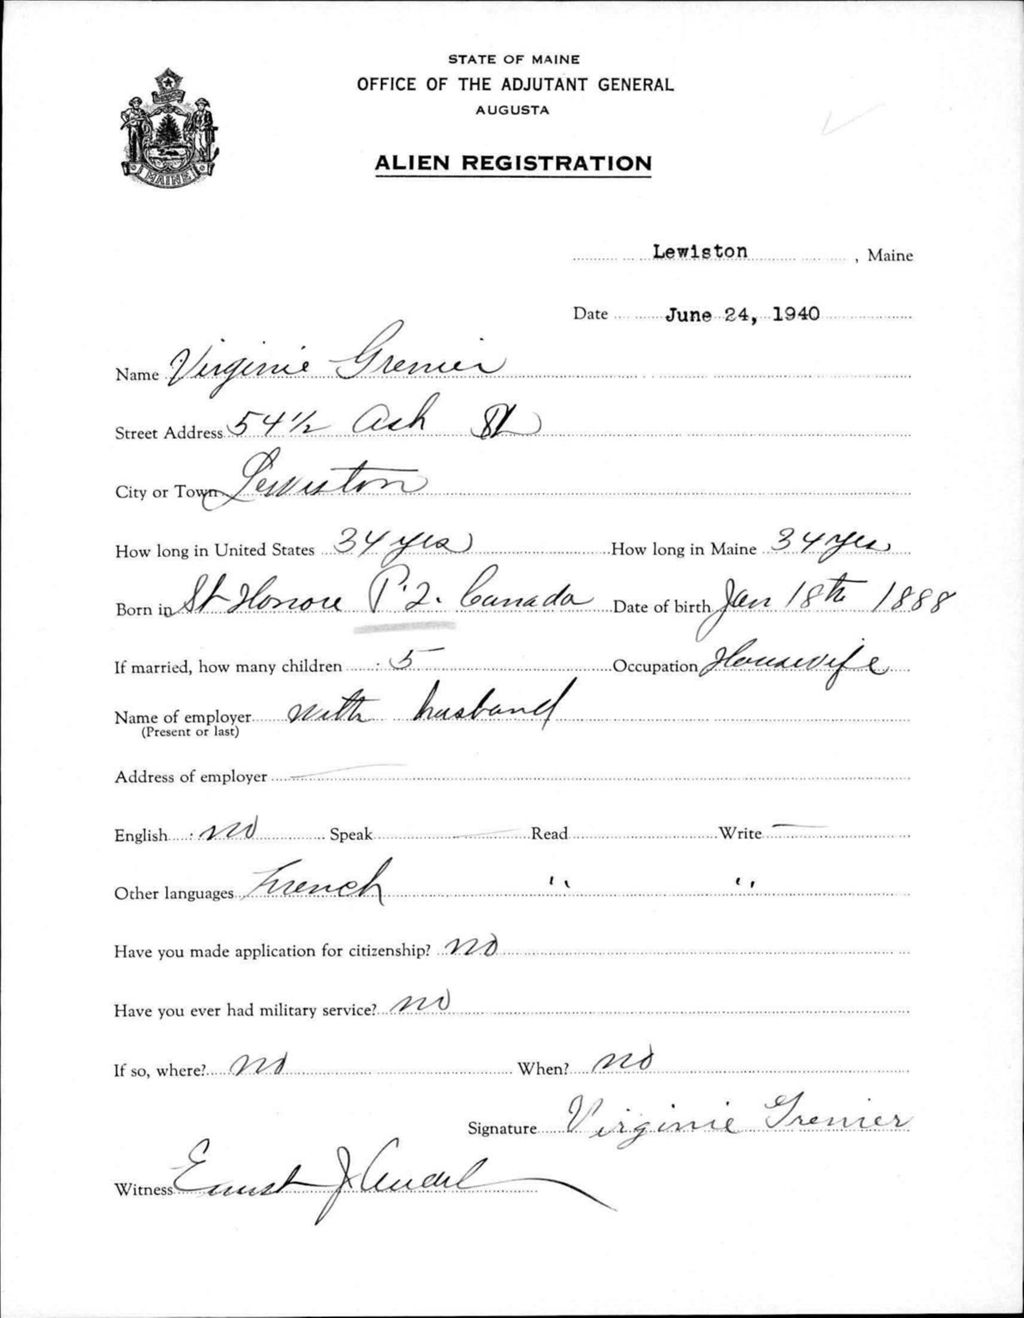 STATE OF MAINE
OFFICE OF THE ADJUTANT GENERAL
AUGUSTA
ALIEN REGISTRATION
MAINE
Lewiston, Maine
Date June 24, 1940
Name Virginie Grenier
Street Address 54 1/2 Ash St
City or Town Lewiston
How long in United States 34 yrs How long in Maine 34 yrs
Born in St Honore P.Q. Canada Date of birth Jan 18th 1888
If married, how many children 5 Occupation Housewife
Name of employer with husband
(Present or last)
Address of employer —
English no Speak Read Write —
Other languages French " "
Have you made application for citizenship? no
Have you ever had military service? no
If so, where? no When? no
Signature Virginie Grenier
Witness Ernest J